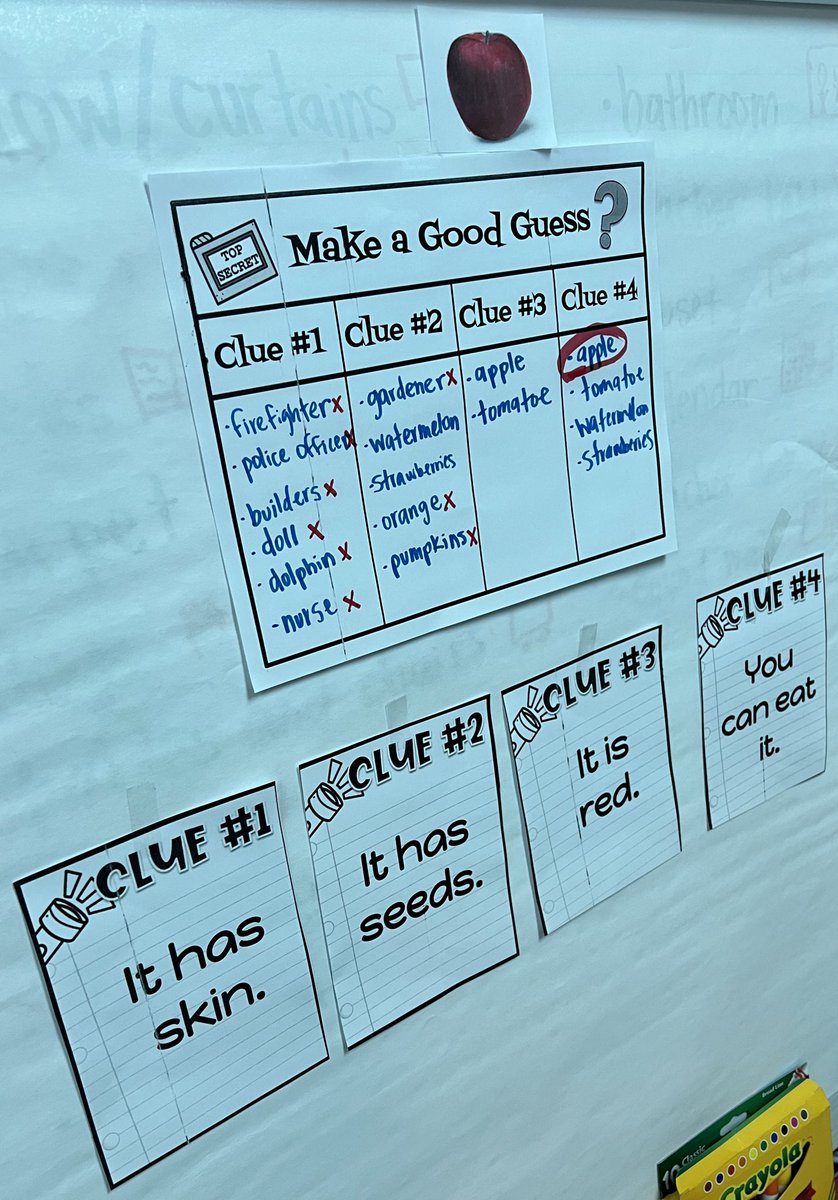 ow/curtains
· bathroom
TOP
SECRET
Make a Good Guess?
Clue #1
Clue #2
Clue #3
Clue #4
· firefighter x
· police officer x
· builders x
· doll x
· dolphin x
· nurse x
· gardener x
· watermelon
· strawberries
· orange x
· pumpkins x
· apple
· tomatoe
· apple
· tomatoe
· watermelon
· strawberries
CLUE #1
It has
skin.
CLUE #2
It has
seeds.
CLUE #3
It is
red.
CLUE #4
You
can eat
it.
Broad Line
10 Classic
Crayola